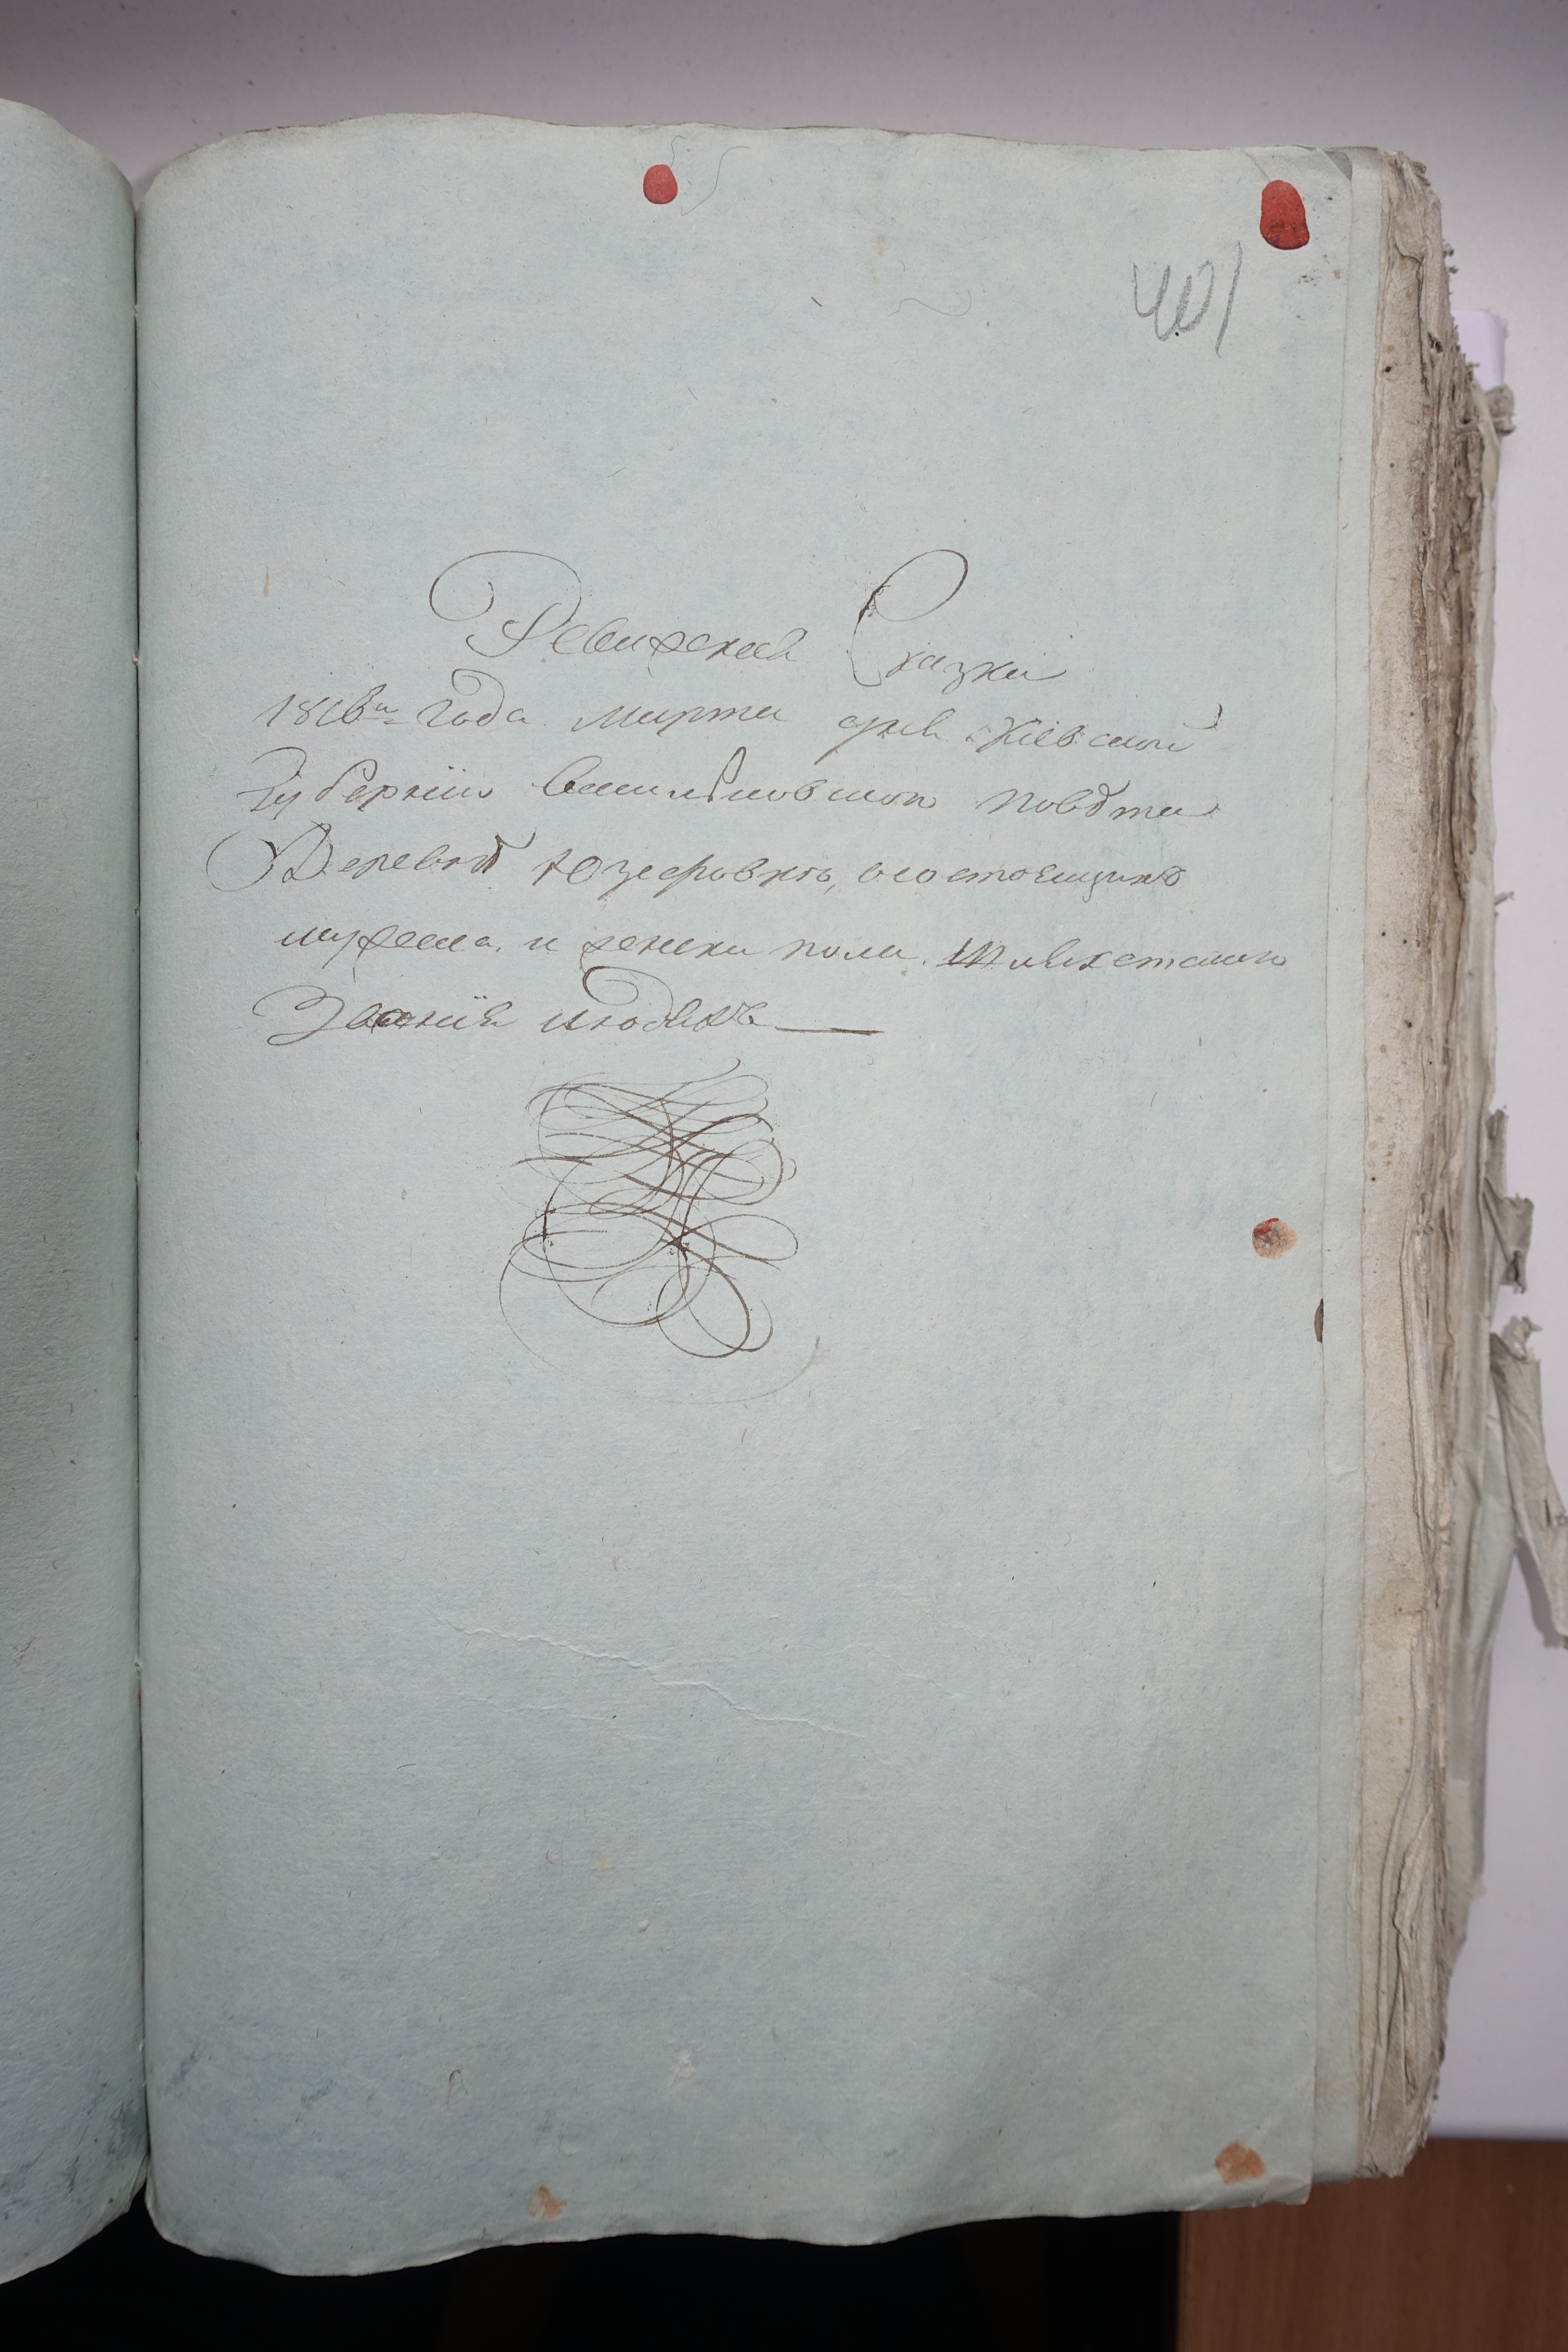 401
Ревизская Сказка
1816го года марта дня Киевской
Губернии Васильковского повѣта
Деревнѣ Юзефовкѣ, о состоящихъ
мужеска и женска пола Шляхетского
Звания людяхъ